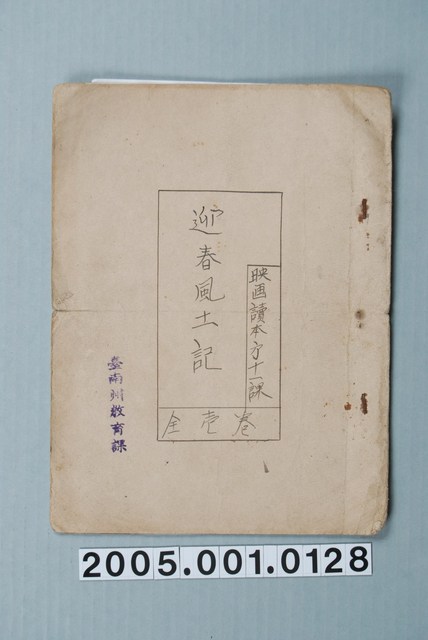 映画讀本第十一課
迎春風土記
全壱巻
臺南州教育課
2005.001.0128